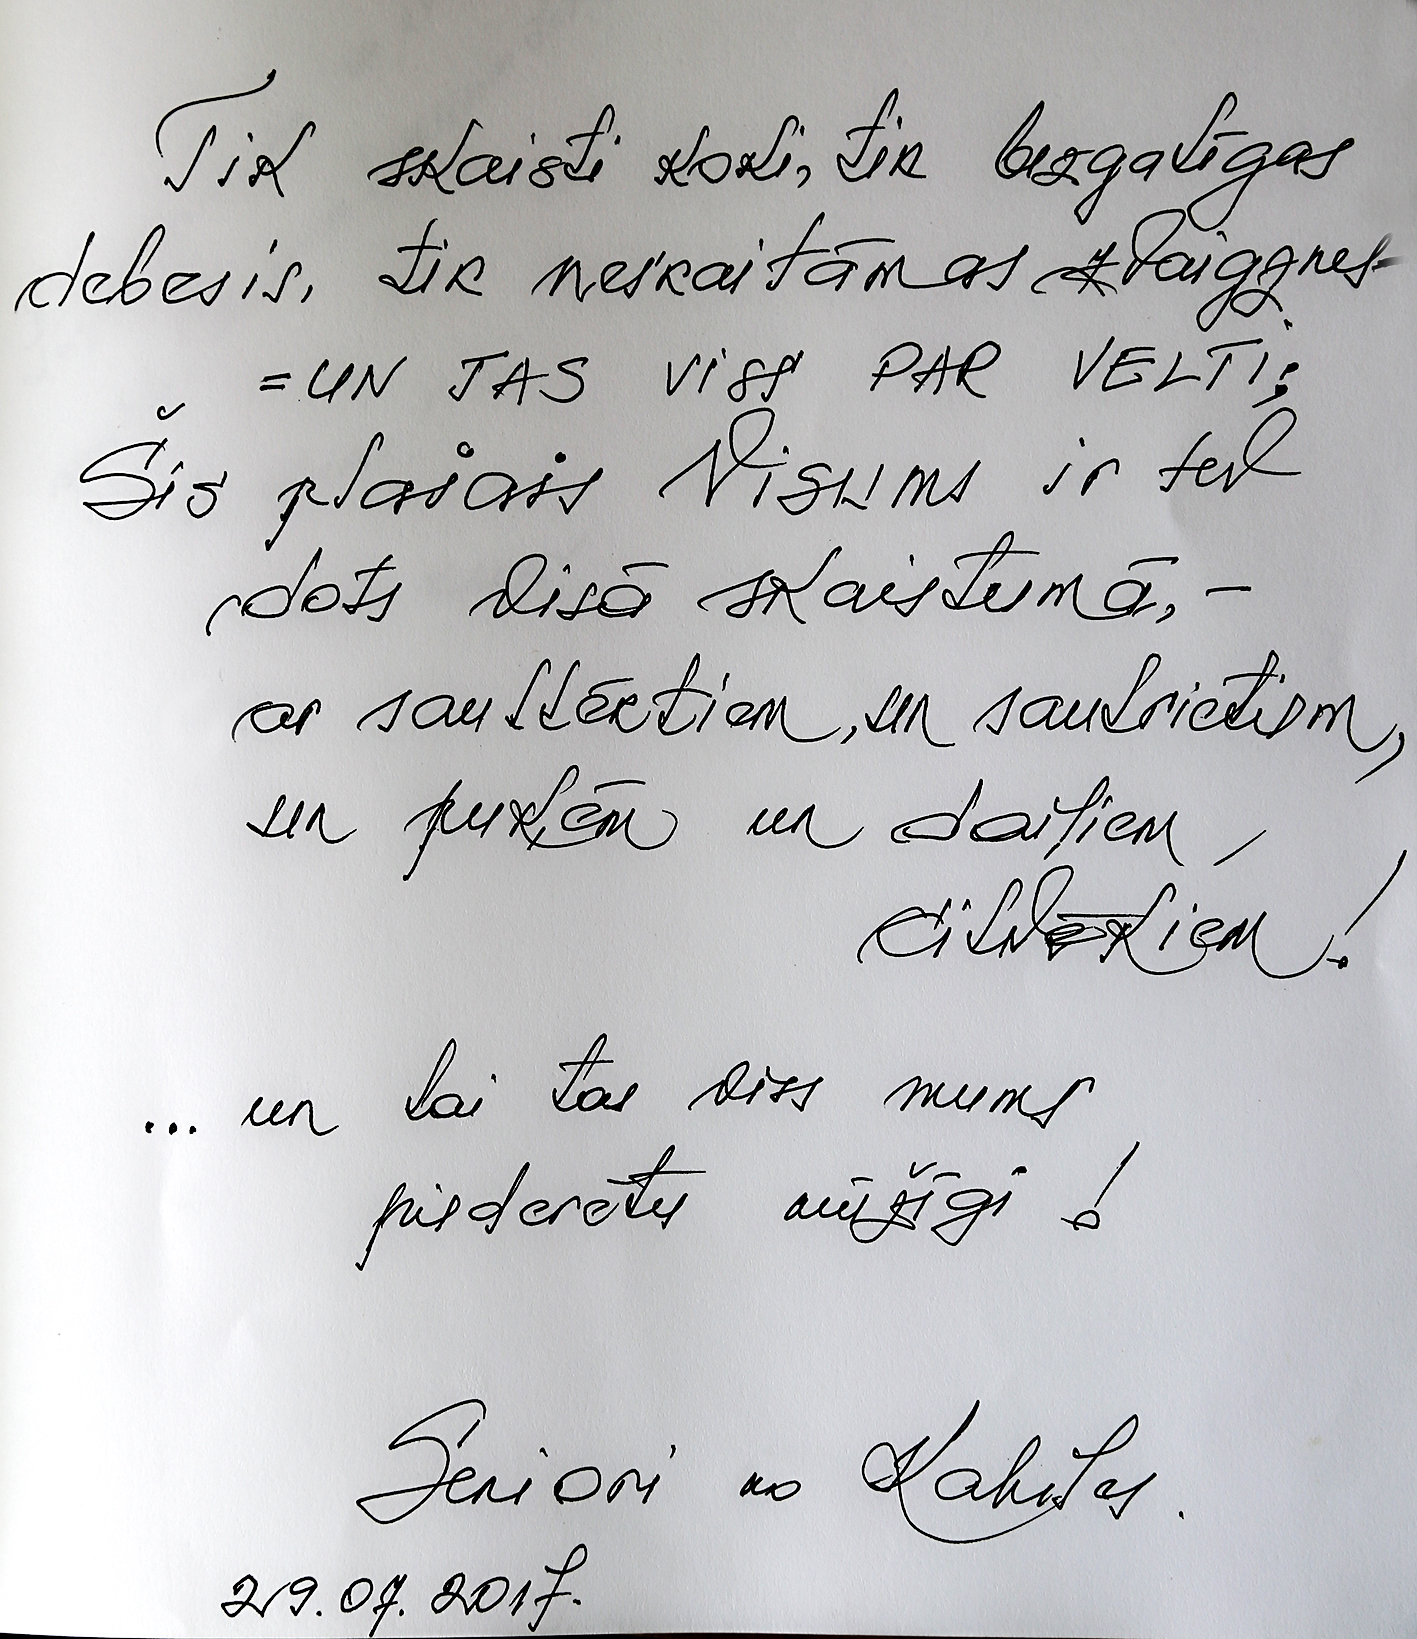 Tik skaisti koki, tik bezgalīgas
debesis, tik neskaitāmas zvaigznes -
= UN TAS VISS PAR VELTI;
Šis plašais Visums ir tev
dots visā skaistumā, -
ar saullēktiem, un saulrietiem,
un puķēm un daiļiem
cilvēkiem!
... un lai tas viss mums
piederētu mūžīgi!
Seniori no Kabiles.
29.07.2017.